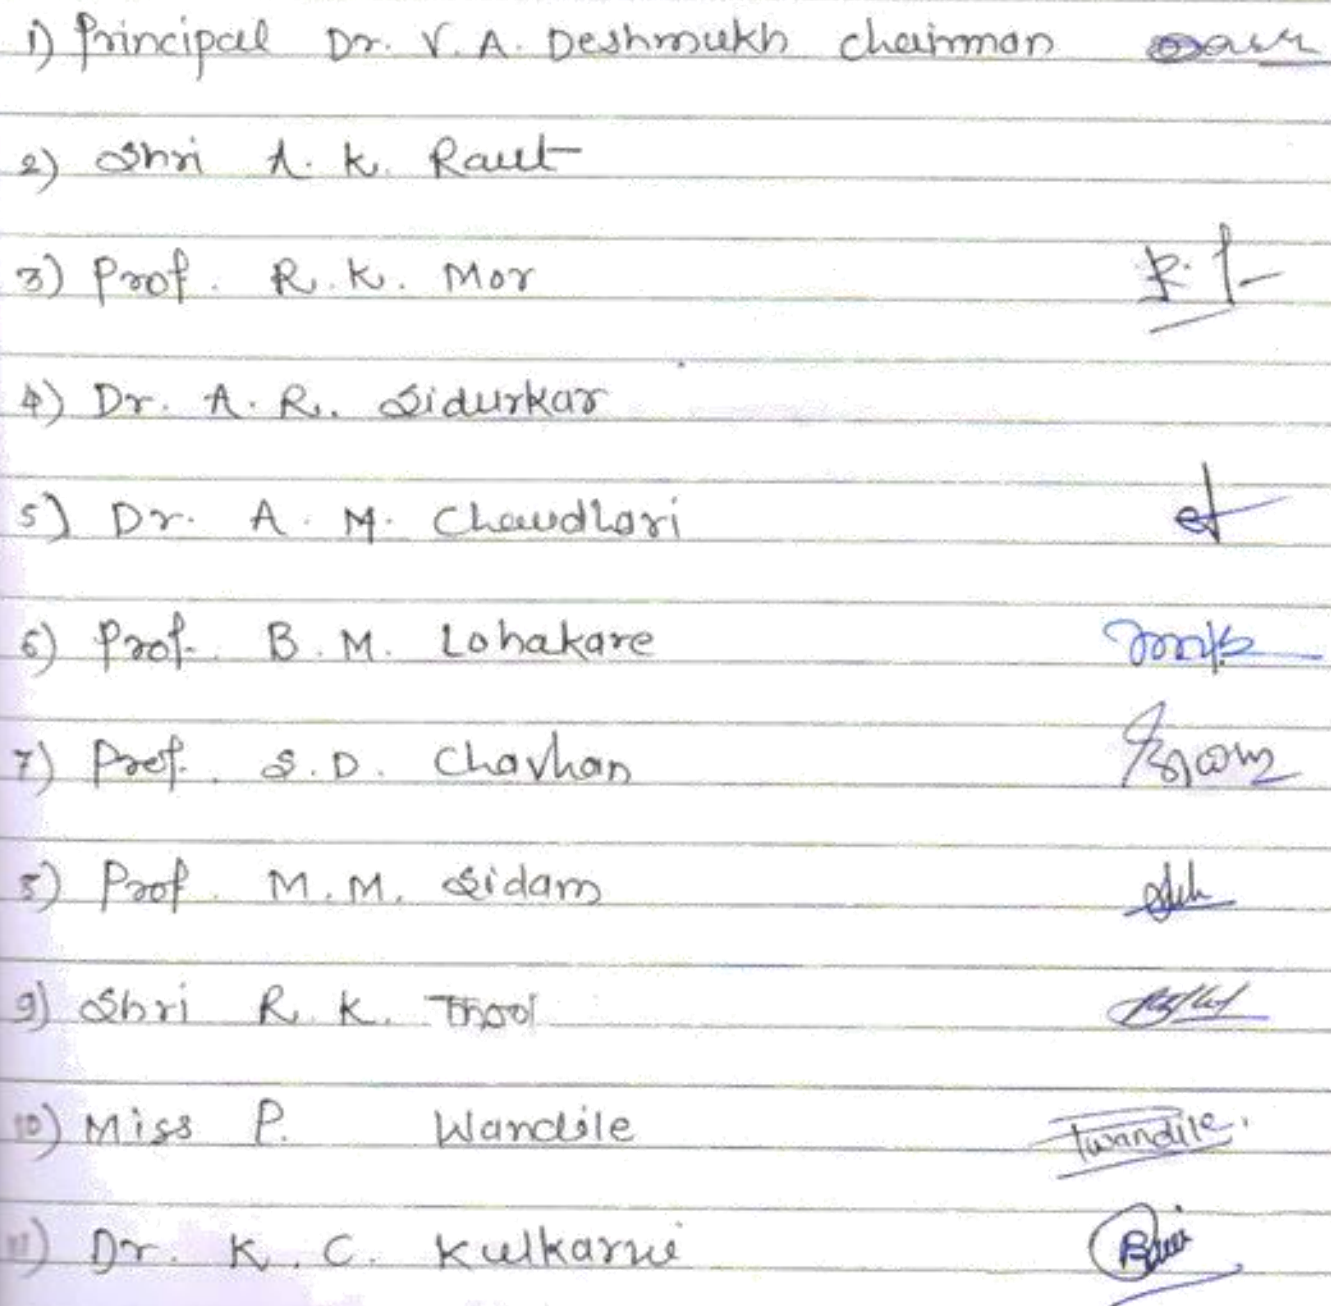 1) Principal Dr. V. A. Deshmukh chairman
2) Shri A. K. Raut
3) Prof. R. K. Mor
4) Dr. A. R. Sidurkar
5) Dr. A. M. Chaudhari
6) Prof. B. M. Lohakare
7) Prof. S. D. Chavhan
8) Prof. M. M. Sidam
9) Shri R. K. Thool
10) Miss P. Wandile Pwandile.
11) Dr. K. C. Kulkarni